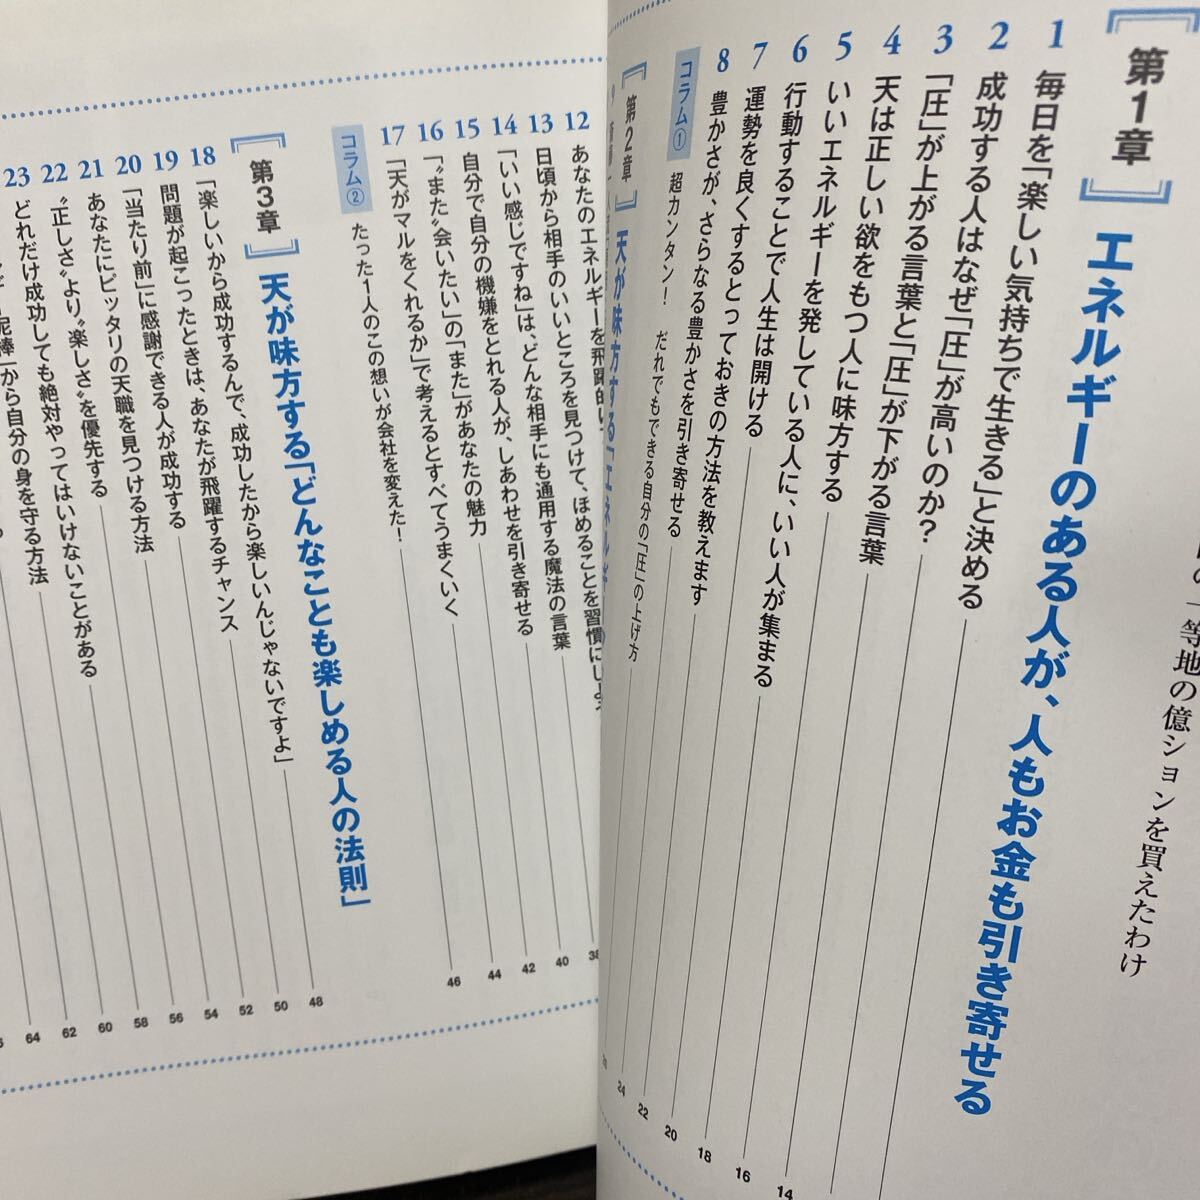 一等地の億ションを買えたわけ
第1章 エネルギーのある人が、人もお金も引き寄せる
1 毎日を「楽しい気持ちで生きる」と決める
2 成功する人はなぜ「圧」が高いのか?
3 「圧」が上がる言葉と「圧」が下がる言葉
4 天は正しい欲をもつ人に味方する
5 いいエネルギーを発している人に、いい人が集まる 14
6 行動することで人生は開ける 16
7 運勢を良くするとっておきの方法を教えます 18
8 豊かさが、さらなる豊かさを引き寄せる 20
コラム① 超カンタン! だれでもできる自分の「圧」の上げ方 22
第2章 天が味方する「エネルギ 24
12 あなたのエネルギーを飛躍的に 38
13 日頃から相手のいいところを見つけて、ほめることを習慣にしよ 40
14 「いい感じですね」は、どんな相手にも通用する魔法の言葉 42
15 自分で自分の機嫌をとれる人が、しあわせを引き寄せる 44
16 「〝また〟会いたい」の「また」があなたの魅力
17 「天がマルをくれるか」で考えるとすべてうまくいく 46
コラム② たった1人のこの想いが会社を変えた!
第3章 天が味方する「どんなことも楽しめる人の法則」 48
18 「楽しいから成功するんで、成功したから楽しいんじゃないですよ」 50
19 問題が起こったときは、あなたが飛躍するチャンス 52
20 「当たり前」に感謝できる人が成功する 54
21 あなたにピッタリの天職を見つける方法 56
22 〝正しさ〟より〝楽しさ〟を優先する 58
23 どれだけ成功しても絶対やってはいけないことがある 60
泥棒」から自分の身を守る方法 62
64